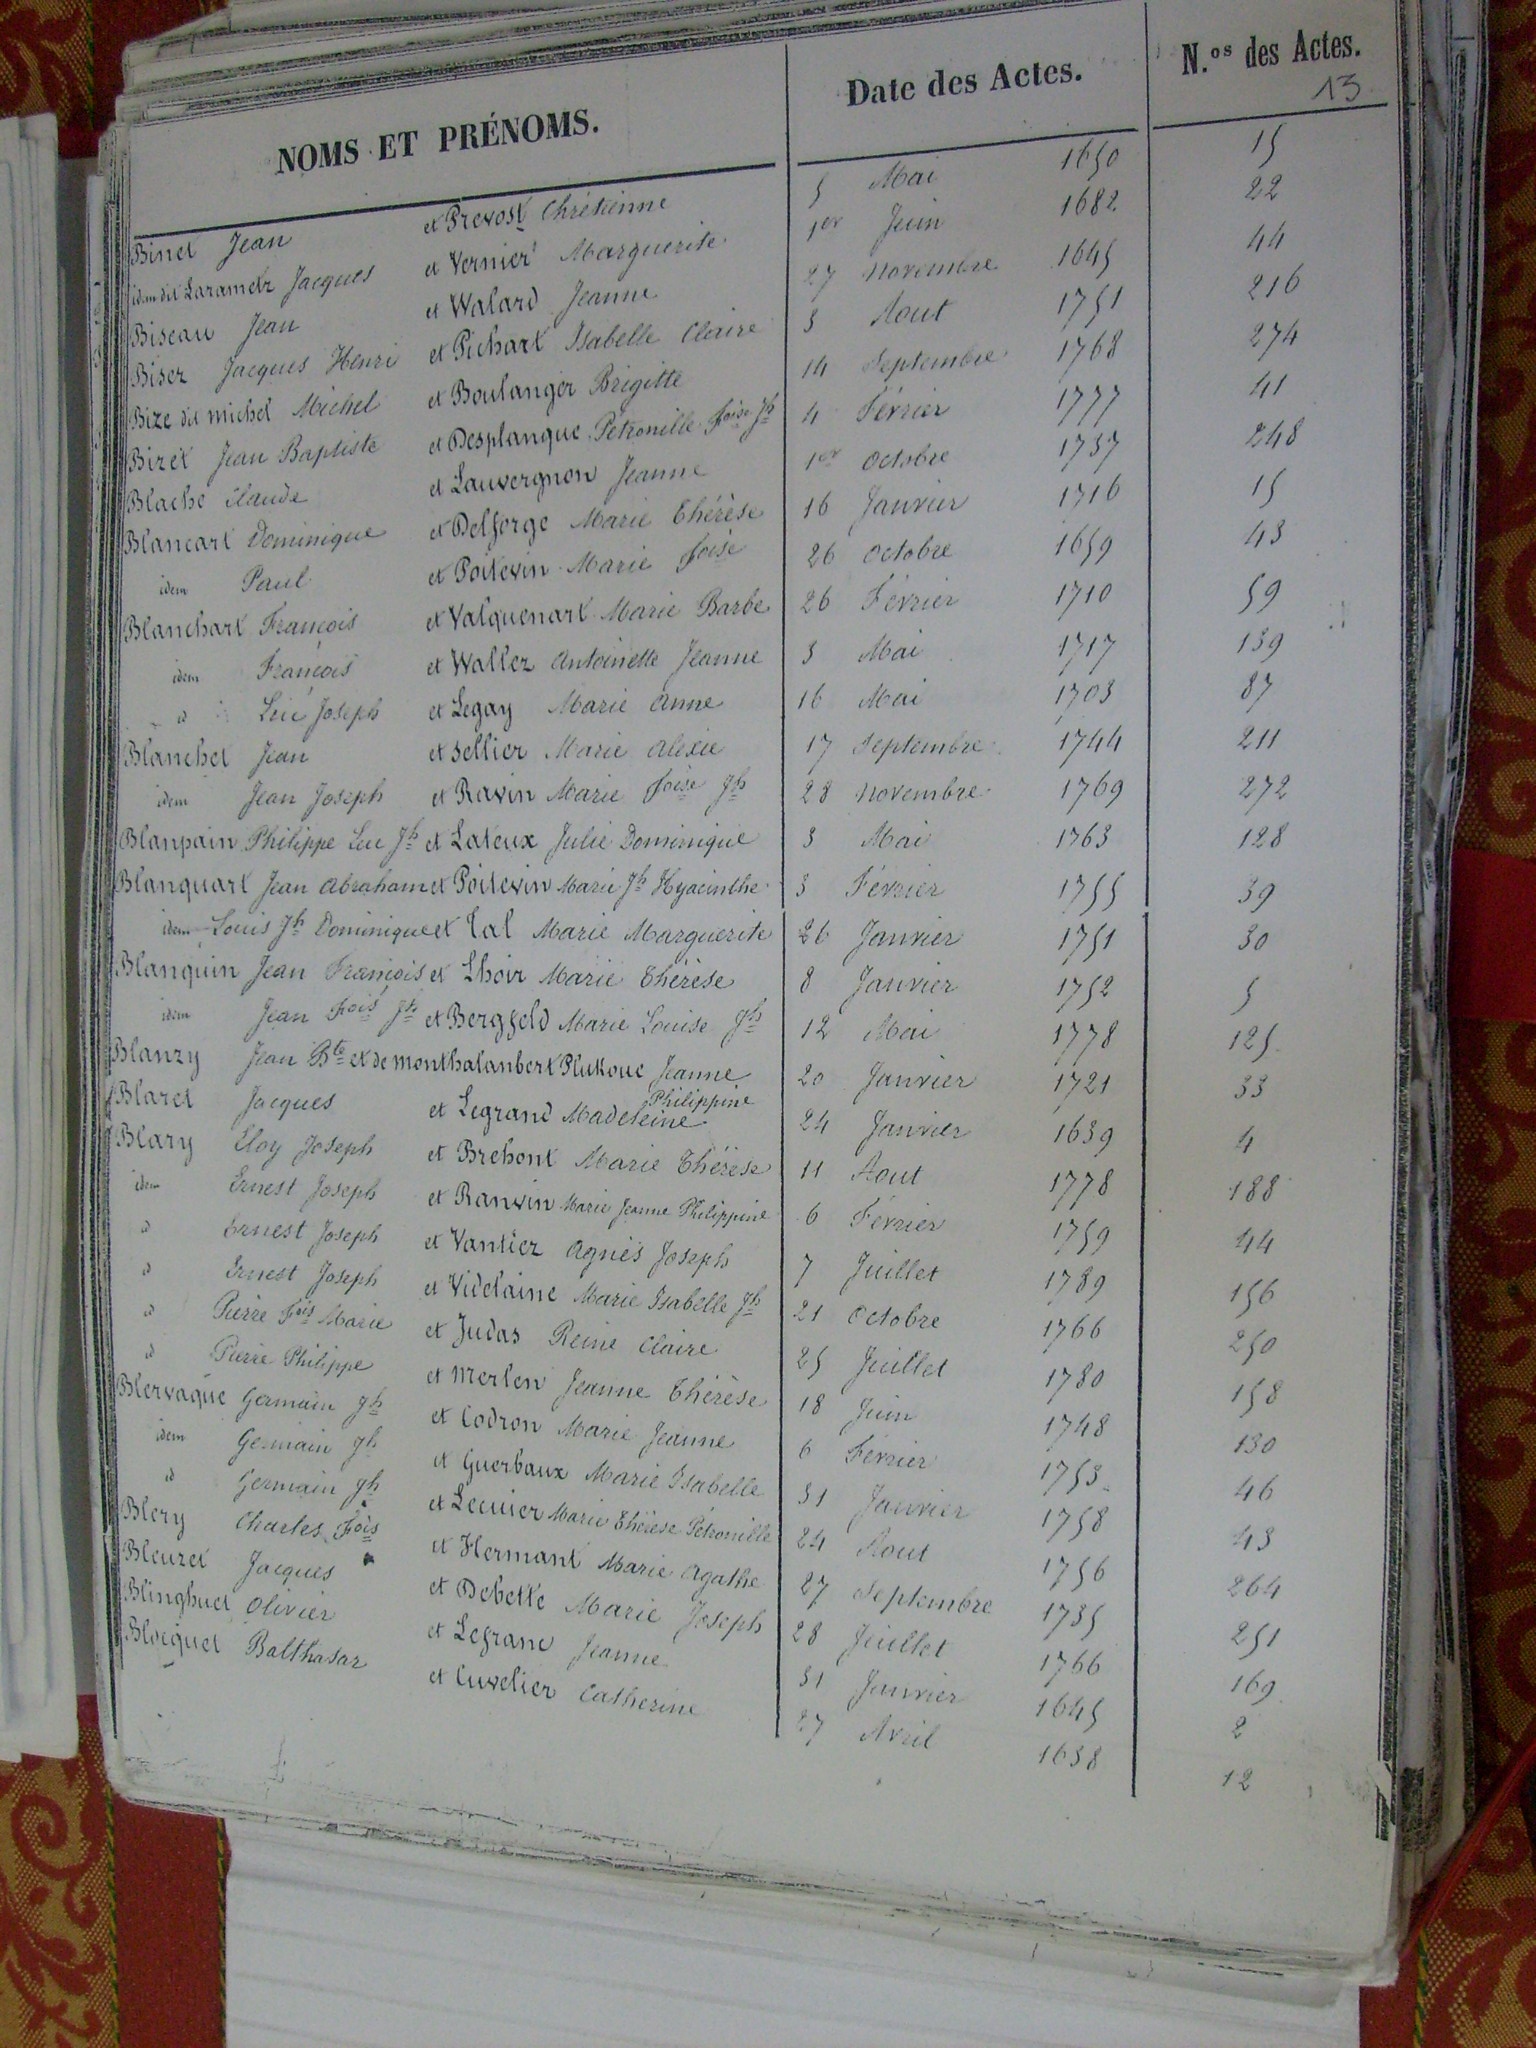 NOMS ET PRÉNOMS. Date des Actes. N.os des Actes.
13
Binet Jean et Prevost Chrétienne 5 Mai 1650 15
idem dit Larametz Jacques et Vernier Marguerite 1er Juin 1682 22
Biseau Jean et Walard Jeanne 27 novembre 1645 44
Bisez Jacques Henri et Pichart Isabelle Claire 3 Aout 1751 216
Bize dit michel Michel et Boulanger Brigitte 14 Septembre 1768 274
Bizet Jean Baptiste et Desplanque Pétronille foise Jh 4 Février 1777 41
Blache Claude et Lauvergnon Jeanne 1er octobre 1737 248
Blancart Dominique et Delforge Marie Thérèse 16 Janvier 1716 15
idem Paul et Poitevin Marie foise 26 octobre 1659 43
Blanchart François et Valquenart Marie Barbe 26 Février 1710 59
idem François et Wallez Antoinette Jeanne 3 Mai 1717 139
id Luc Joseph et Legay Marie Anne 16 Mai 1703 87
Blanchet Jean et Sellier Marie Alexie 17 Septembre 1744 211
idem Jean Joseph et Ravin Marie foise Jh 28 novembre 1769 272
Blanpain Philippe Luc Jh et Lateux Julie Dominique 3 Mai 1763 128
Blanquart Jean Abraham et Poitevin Marie Jh Hyacinthe 3 Février 1755 39
idem Louis Jh Dominique et Tal Marie Marguerite 26 Janvier 1751 30
Blanquin Jean François et Lhoir Marie Thérèse 8 Janvier 1752 5
idem Jean Fois Jh et Bergfeld Marie Louise Jh 12 Mai 1778 125
Blanzy Jean Bte et de Monthalanbert Plukoue Jeanne 20 Janvier 1721 33
Philippine
Blaret Jacques et Legrand Madeleine 24 Janvier 1639 4
Blary Eloy Joseph et Brehont Marie Thérèse 11 Aout 1778 188
idem Ernest Joseph et Ranvin Marie Jeanne Philippine 6 Février 1759 44
id Ernest Joseph et Vantiez Agnès Joseph 7 Juillet 1789 156
id Ernest Joseph et Videlaine Marie Isabelle Jh 21 Octobre 1766 250
id Pierre Fois Marie et Judas Reine Claire 25 Juillet 1780 158
id Pierre Philippe et Merlen Jeanne Thérèse 18 Juin 1748 130
Blervaque Germain Jh et Codron Marie Jeanne 6 Février 1753 46
idem Germain Jh et Guerbaux Marie Isabelle 31 Janvier 1758 43
id Germain Jh et Lecuier Marie Thérèse Pétronille 24 Aout 1756 264
Blery Charles Fois et Hermant Marie Agathe 27 Septembre 1735 251
Bleuzet Jacques et Debette Marie Joseph 28 Juillet 1766 169
Blinghuet Olivier et Lefranc Jeanne 31 Janvier 1645 2
Blocquet Balthasar et Cuvelier Catherine 27 Avril 1638 12